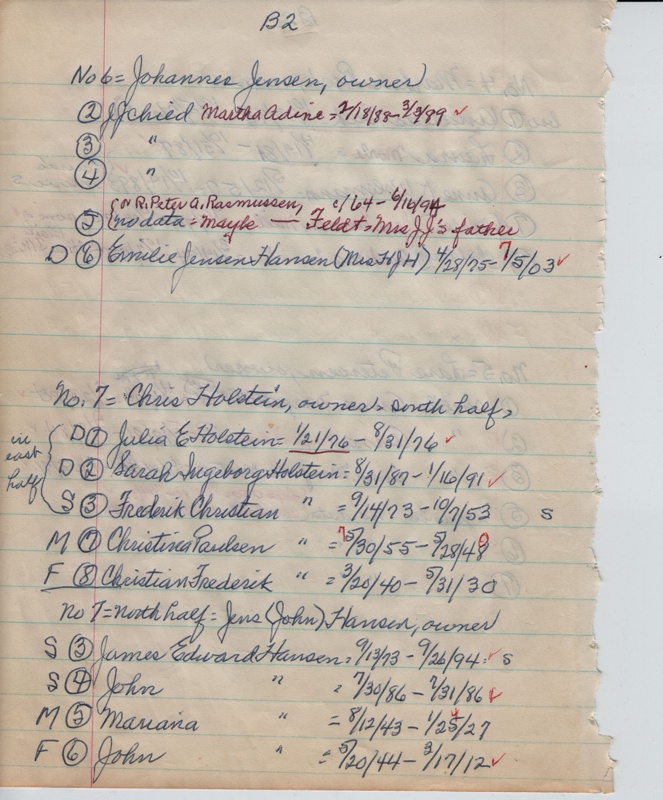 B2
No 6 = Johannes Jensen, owner
② JJ chied Martha Adine = 2/18/88 - 3/3/89 ✓
③ "
④ "
or R. Peter A. Rasmussen, c/64 - 6/16/94
⑤ no data = Maybe — Feldt = Mrs JJ's father
D ⑥ Emilie Jensen Hansen (Mrs HJH) 4/28/75 - 7/5/03 ✓
No. 7 = Chris Holstein, owner, south half,
in east half
D ① Julia E Holstein = 1/21/76 - 8/31/76 ✓
D ② Sarah Ingeborg Holstein = 8/31/87 - 1/16/91 ✓
S ③ Frederik Christian " = 9/14/73 - 10/7/53 S
M ⑦ Christina Paulsen " = 5/30/55 - 5/28/48
F ⑧ Christian Frederik " = 3/20/40 - 5/31/30
No 7 = north half = Jens (John) Hansen, owner
S ③ James Edward Hansen = 9/13/73 - 9/26/94 ✓ S
S ④ John " = 7/30/86 - 7/31/86 ✓
M ⑤ Mariana " = 8/12/43 - 1/25/27
F ⑥ John " = 5/20/44 - 3/17/12 ✓